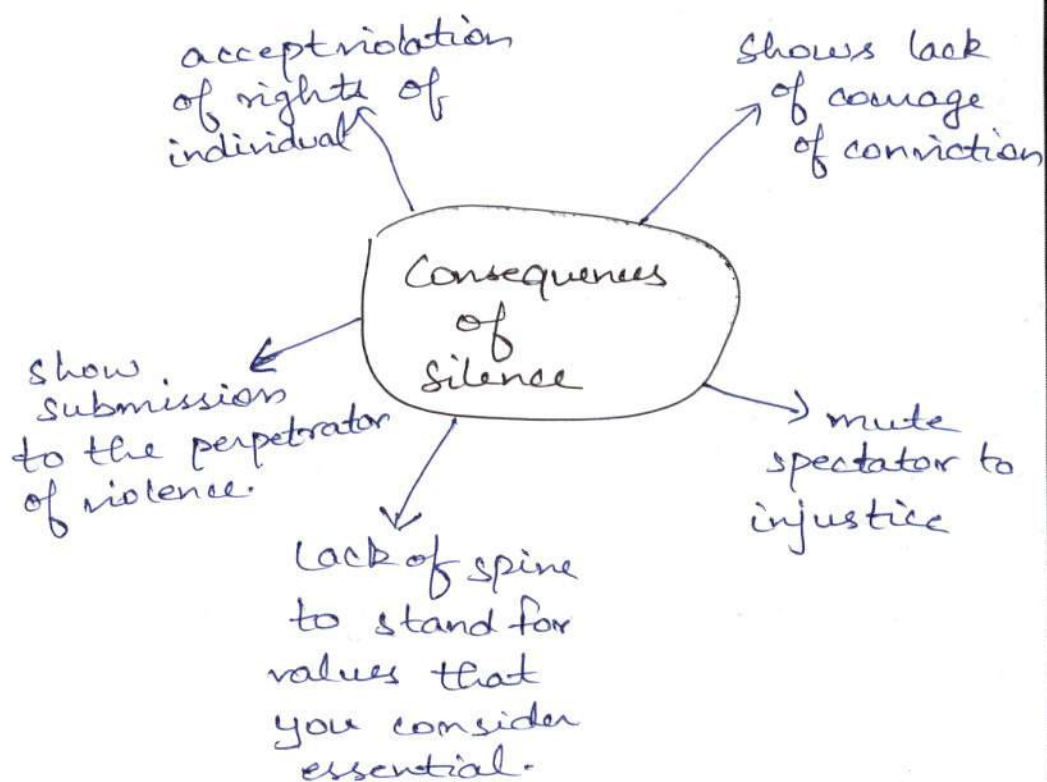 accept violation
of rights of
individual
shows lack
of courage
of conviction
Consequences
of
silence
show
submission
to the perpetrator
of violence.
mute
spectator to
injustice
Lack of spine
to stand for
values that
you consider
essential.